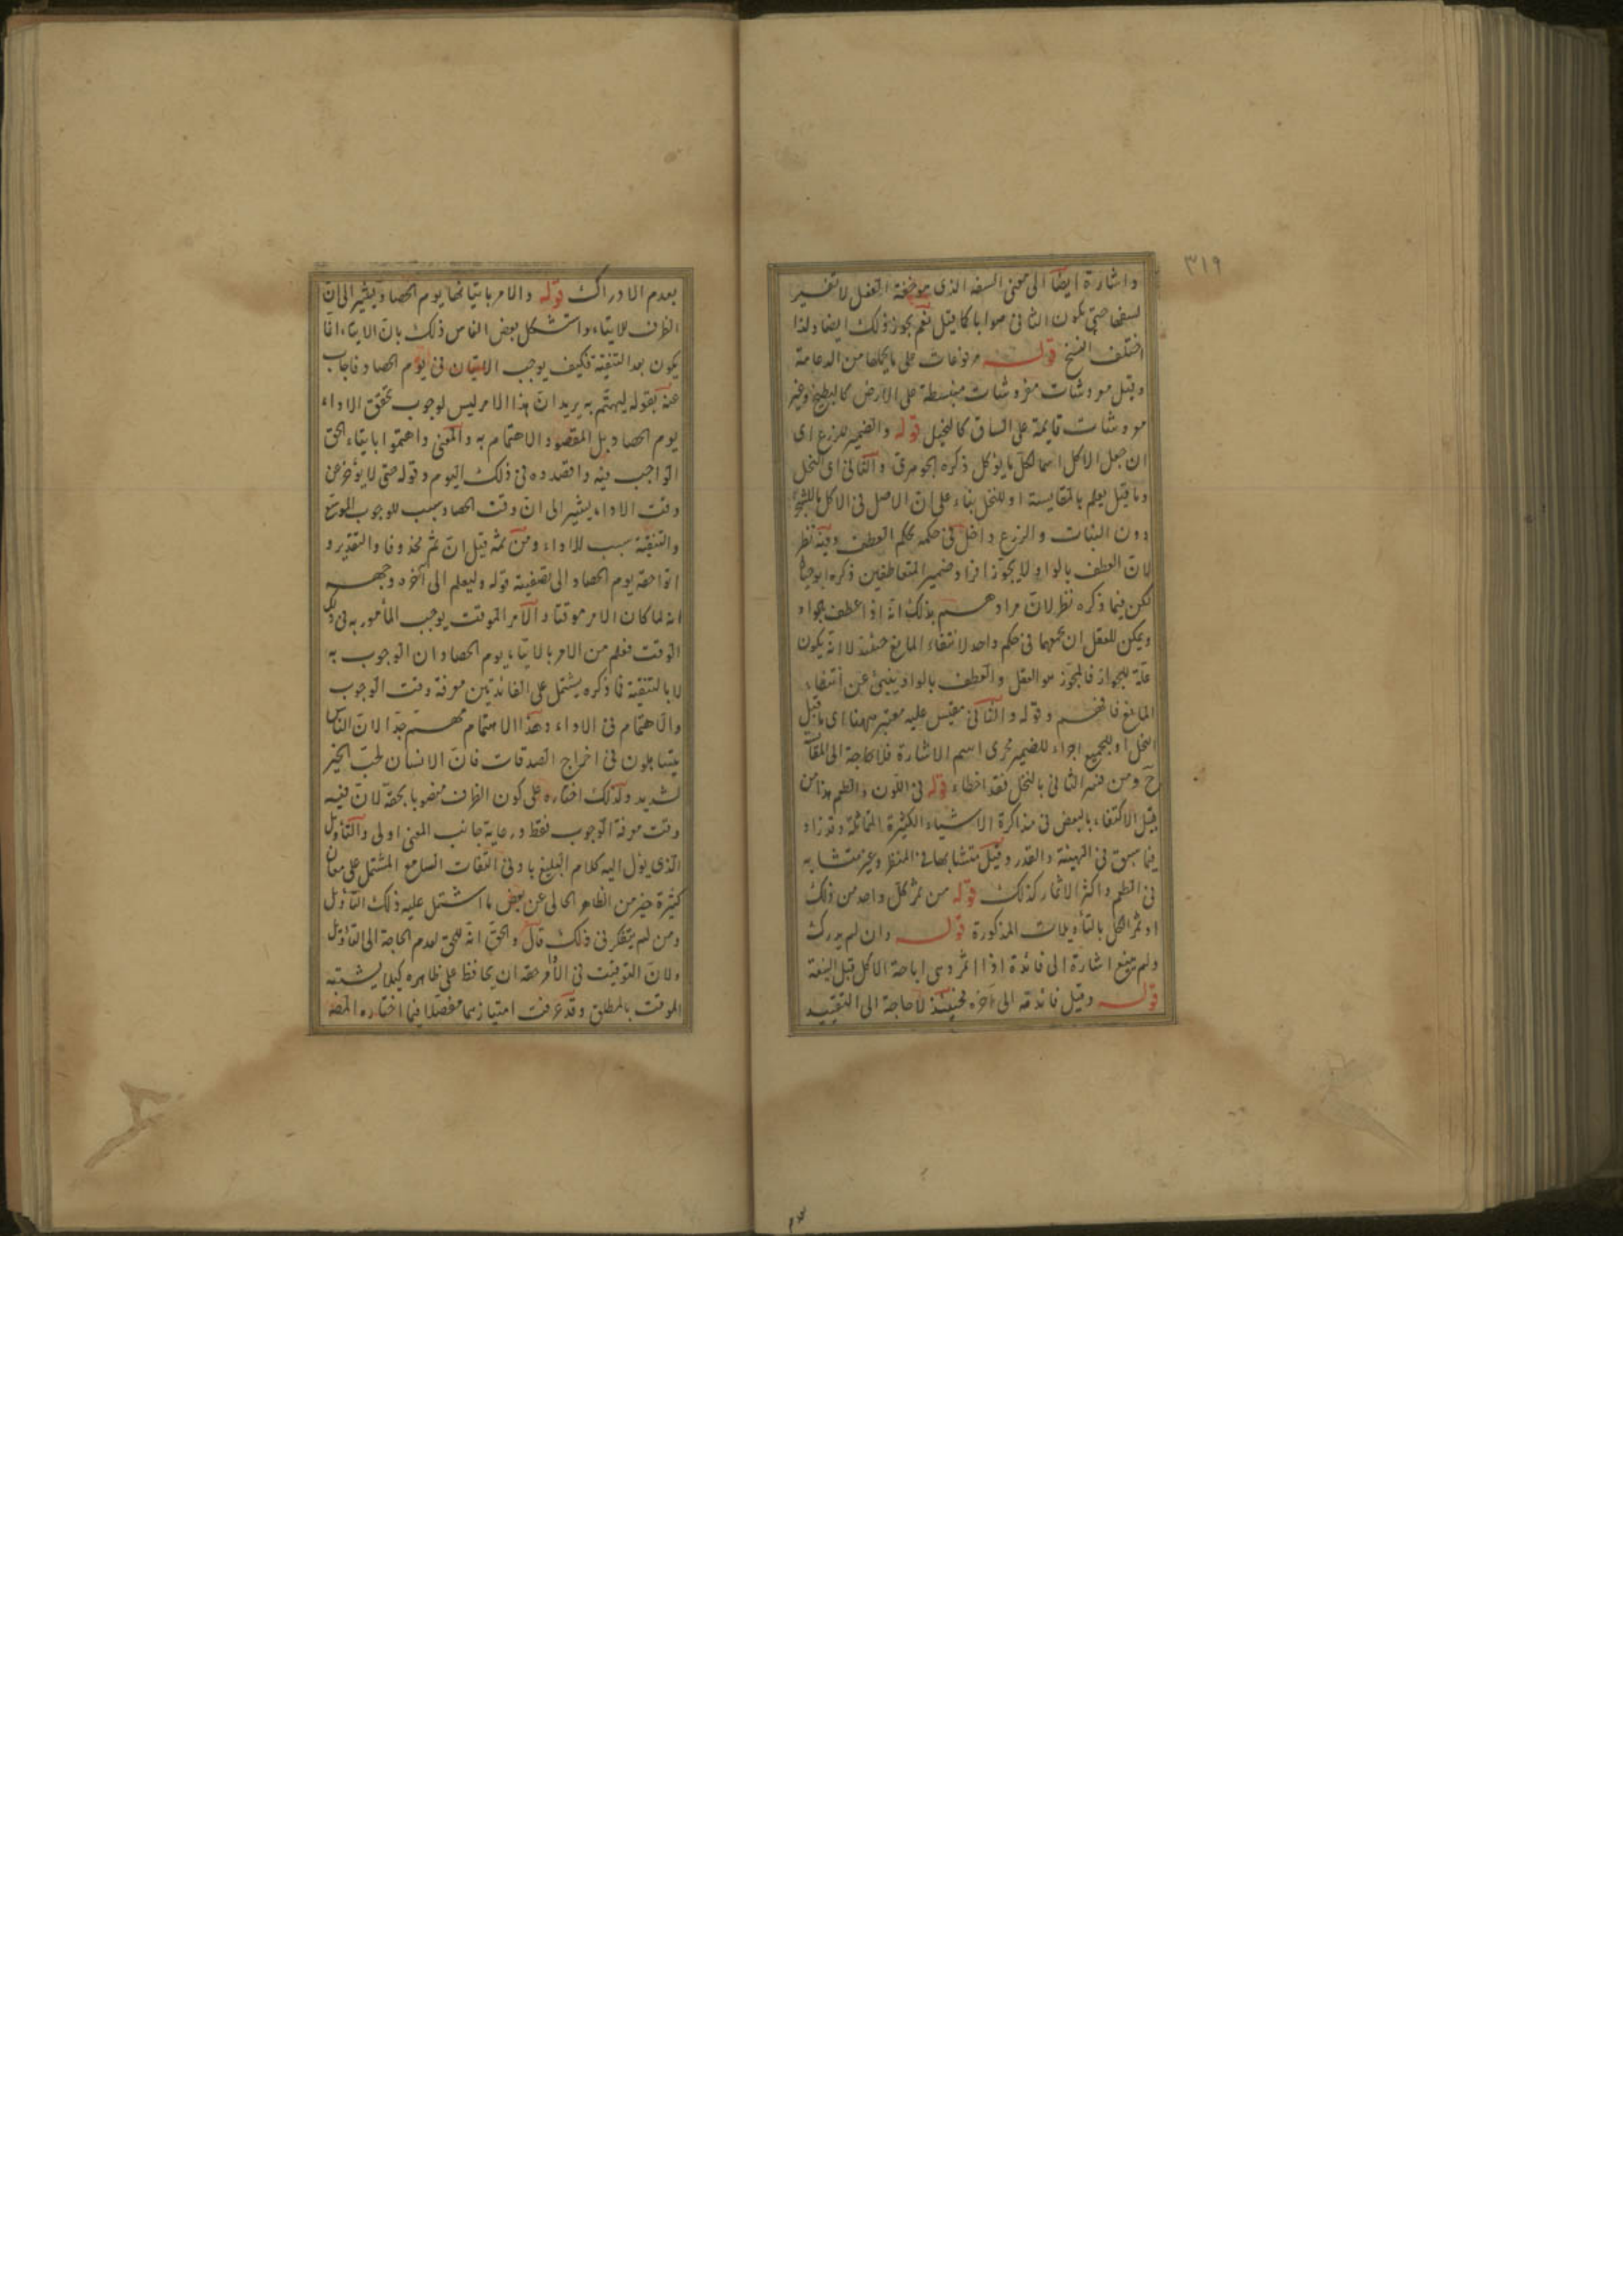 ٣١٩
واشارة ايضا الى معنى السفه الذى هو خفة العقل لا تفسير
لسفها حتى يكون الثانى صوابا كما قيل نعم يجوز ذلك ايضا ولذا
اختلف النسخ قوله مرفوعات على ما يحملها من الدعامة
وقيل معروشات مفروشات منبسطة على الارض كالبطيخ وغير
معروشات قايمة على الساق كالنخيل قوله والضمير للزرع اى
ان جعل الاكل اسما لكل ما يؤكل ذكره الجوهرى والثانى اى النخل
وما قيل يعلم بالمقايسة او للنخل بناء على ان الاصل فى الاكل للشجر
دون النبات والزرع داخل فى حكمه بحكم العطف وفيه نظر
لان العطف بالواو لا يجوز افراد ضمير المتعاطفين ذكره ابو حيان
لكن فيما ذكره نظر لان مرادهم بذلك انه اذا عطف بالواو
ويمكن للعقل ان يجمعهما فى حكم واحد لانتفاء المانع حينئذ لا انه يكون
علة للجواز فالمجوز هو العقل والعطف بالواو ينبئ عن انتفاء
المانع فافهم وقوله والثانى مقيس عليه معتبر ههنا اى ما قيل
النخل او للجميع اجراء للضمير مجرى اسم الاشارة فلا حاجة الى المقا
ح ومن فسر الثانى بالنخل فقد اخطاء قوله فى اللون والطعم هذا من
قبيل الاكتفاء بالبعض فى مذاكرة الاشياء الكثيرة المتماثلة وقد زاد
فيما سبق فى الهيئة والقدر وقيل متشابها فى المنظر وغير متشابه
فى الطعم واكثر الاثمار كذلك قوله من ثمر كل واحد من ذلك
او ثمر الكل بالتأويلات المذكورة قوله وان لم يدرك
ولم يينع اشارة الى فائدة اذا اثمر وهى اباحة الاكل قبل الينعة
قوله وقيل فائدته الى آخره فحينئذ لا حاجة الى التقييد
بعدم الادراك قوله والامر بايتائها يوم الحصاد يشير الى ان
الظرف للايتاء واستشكل بعض الناس ذلك بان الايتاء انما
يكون بعد التنقية فكيف يوجب الايتاء فى يوم الحصاد فاجاب
عنه بقوله ليهتم به يريد ان هذا الامر ليس لوجوب تحقق الاداء
يوم الحصاد بل المقصود الاهتمام به والمعنى واهتموا بايتاء الحق
الواجب فيه واقصدوه فى ذلك اليوم وقوله حتى لا يؤخر عن
وقت الاداء يشير الى ان وقت الحصاد سبب للوجوب الموسع
والتنقية سبب للاداء ومن ثمه قيل ان ثم محذوفا والتقدير و
اتوا حقه يوم الحصاد الى تصفيته قوله وليعلم الى آخره وجهه
انه لما كان الامر موقتا والامر الموقت يوجب المأمور به فى ذلك
الوقت فعلم من الامر بالايتاء يوم الحصاد ان الوجوب به
لا بالتنقية فما ذكره يشتمل على الفائدتين معرفة وقت الوجوب
والاهتمام فى الاداء وهذا الاهتمام مهم جدا لان الناس
يتساهلون فى اخراج الصدقات فان الانسان لحب الخير
لشديد ولذلك اختاره على كون الظرف منصوبا بحقه لان فيه
وقت معرفة الوجوب فقط ورعاية جانب المعنى اولى والتأويل
الذى يؤل اليه كلام البليغ بادنى التفات السامع المشتمل على معان
كثيرة خير من الظاهر الخالى عن بعض ما اشتمل عليه ذلك التأويل
ومن لم يتفكر فى ذلك قال والحق انه للحق لعدم الحاجة الى التأويل
ولان التوقيت فى الامر حقه ان يحافظ على ظاهره كيلا يشتبه
الموقت بالمطلق وقد عرفت امتيازهما مفصلا فيما اختاره المصنف